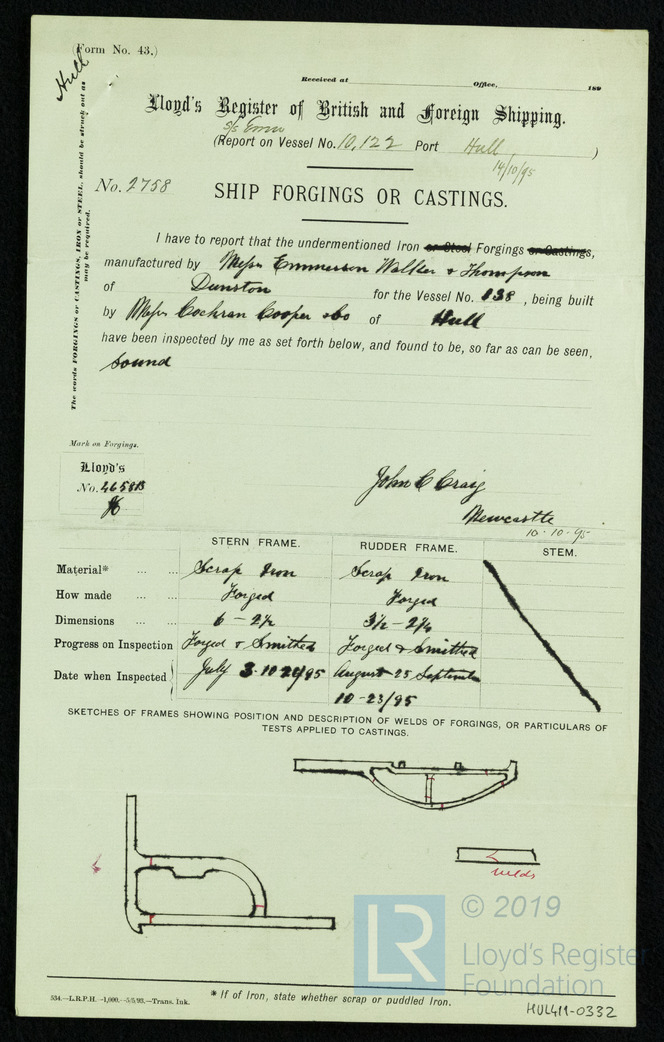 (Form No. 43.)
Hull
Received at Office, 189
Lloyd's Register of British and Foreign Shipping.
S/S Emu
(Report on Vessel No. 10,122 Port Hull )
14/10/95
No. 2758
SHIP FORGINGS OR CASTINGS.
The words FORGINGS or CASTINGS, IRON or STEEL, should be struck out as
may be required.
I have to report that the undermentioned Iron or Steel Forgings or Castings,
manufactured by Messrs Emmerson Walker & Thompson
of Dunston for the Vessel No. 138, being built
by Messrs Cochran Cooper & Co of Hull
have been inspected by me as set forth below, and found to be, so far as can be seen,
sound
Mark on Forgings.
Lloyd's
No. 4658B
John C Craig
Newcastle
10-10-95
STERN FRAME. RUDDER FRAME. STEM.
Material* ... ... Scrap Iron Scrap Iron
How made ... ... Forged Forged
Dimensions ... ... 6 - 2½ 3½ -
Progress on Inspection Forged & Smithed Forged & Smithed
Date when Inspected July 3-10-24/95 August 25 September
10-23/95
SKETCHES OF FRAMES SHOWING POSITION AND DESCRIPTION OF WELDS OF FORGINGS, OR PARTICULARS OF
TESTS APPLIED TO CASTINGS.
welds
LR
© 2019
Lloyd's Register
Foundation
* If of Iron, state whether scrap or puddled Iron.
534.—L.R.P.H.—1,000.—5/5/93.—Trans. Ink.
HUL411-0332